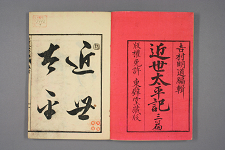 吉村明道編輯
近世太平記 三篇
版權免許 東
近世
太平